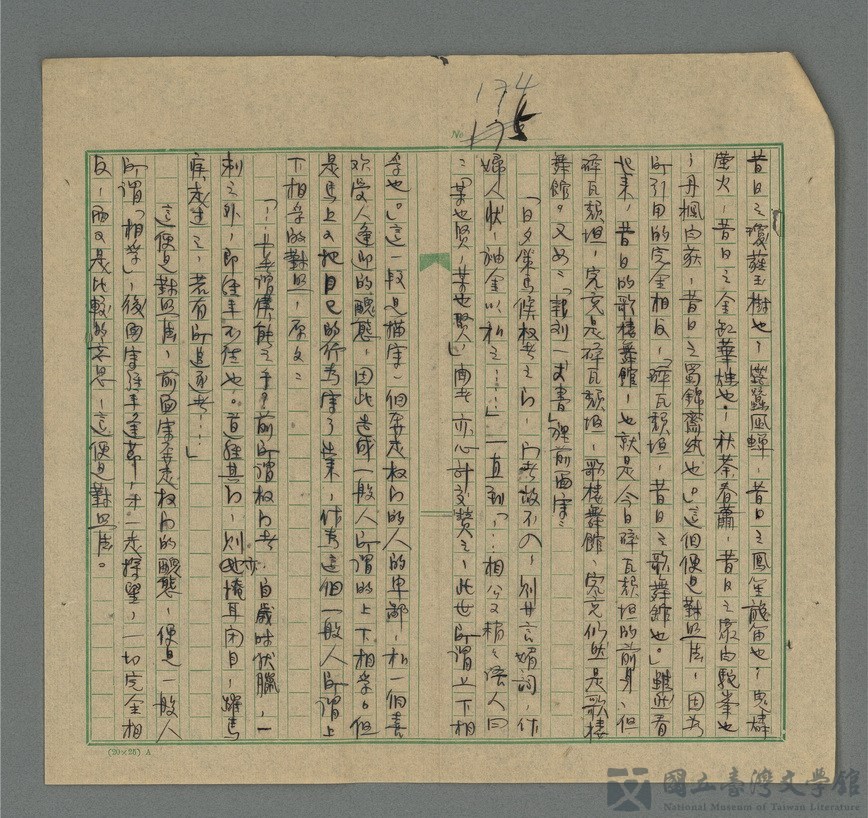 174
No. 175
昔日之瓊蕤玉樹也，露蛬風蟬，昔日之鳳笙龍笛也，鬼燐
螢火，昔日之金缸華燭也，秋荼春薺，昔日之象白駝峯也
，丹楓白荻，昔日之蜀錦齊紈也。」這個便是對照法，因為
所引用的完全相反，「碎瓦頹垣，昔日之歌舞館也。」雖然看
起來，昔日的歌樓舞館，也就是今日碎瓦頹垣的前身，但
碎瓦頹垣，究竟是碎瓦頹垣，歌樓舞館，究竟仍然是歌樓
舞館。又如：「報刘一丈書」裡前面寫：
「日夕策馬候权者之门，门者故不入，則甘言媚詞，作
婦人狀，袖金以私之……」一直到「……相公又稍稍語人曰
：『某也賢，某也賢。』聞者亦心計交贊之，此世所謂上下相
孚也。」這一段是描寫一個奔走权门的人的卑鄙，和一個喜
欢受人逢迎的醜態，因此造成一般人所謂的上下相孚。但
是馬上又把自己的行為寫了出來，作為這個一般人所謂上
下相孚的對照，原文：
「……長者謂僕能之乎？前所謂权门者，自歲時伏臘，一
刺之外，即經年不往也。道經其门，則亦掩耳闭目，躍馬
疾走过之，若有所追逐者……」
這便是對照法，前面寫奔走权门的醜態，便是一般人
所謂「相孚」，後面寫經年逢節，才一走探望，一切完全相
反，而又是比較的意思，這便是對照法。
(20×25) A
國立臺灣文學館
National Museum of Taiwan Literature